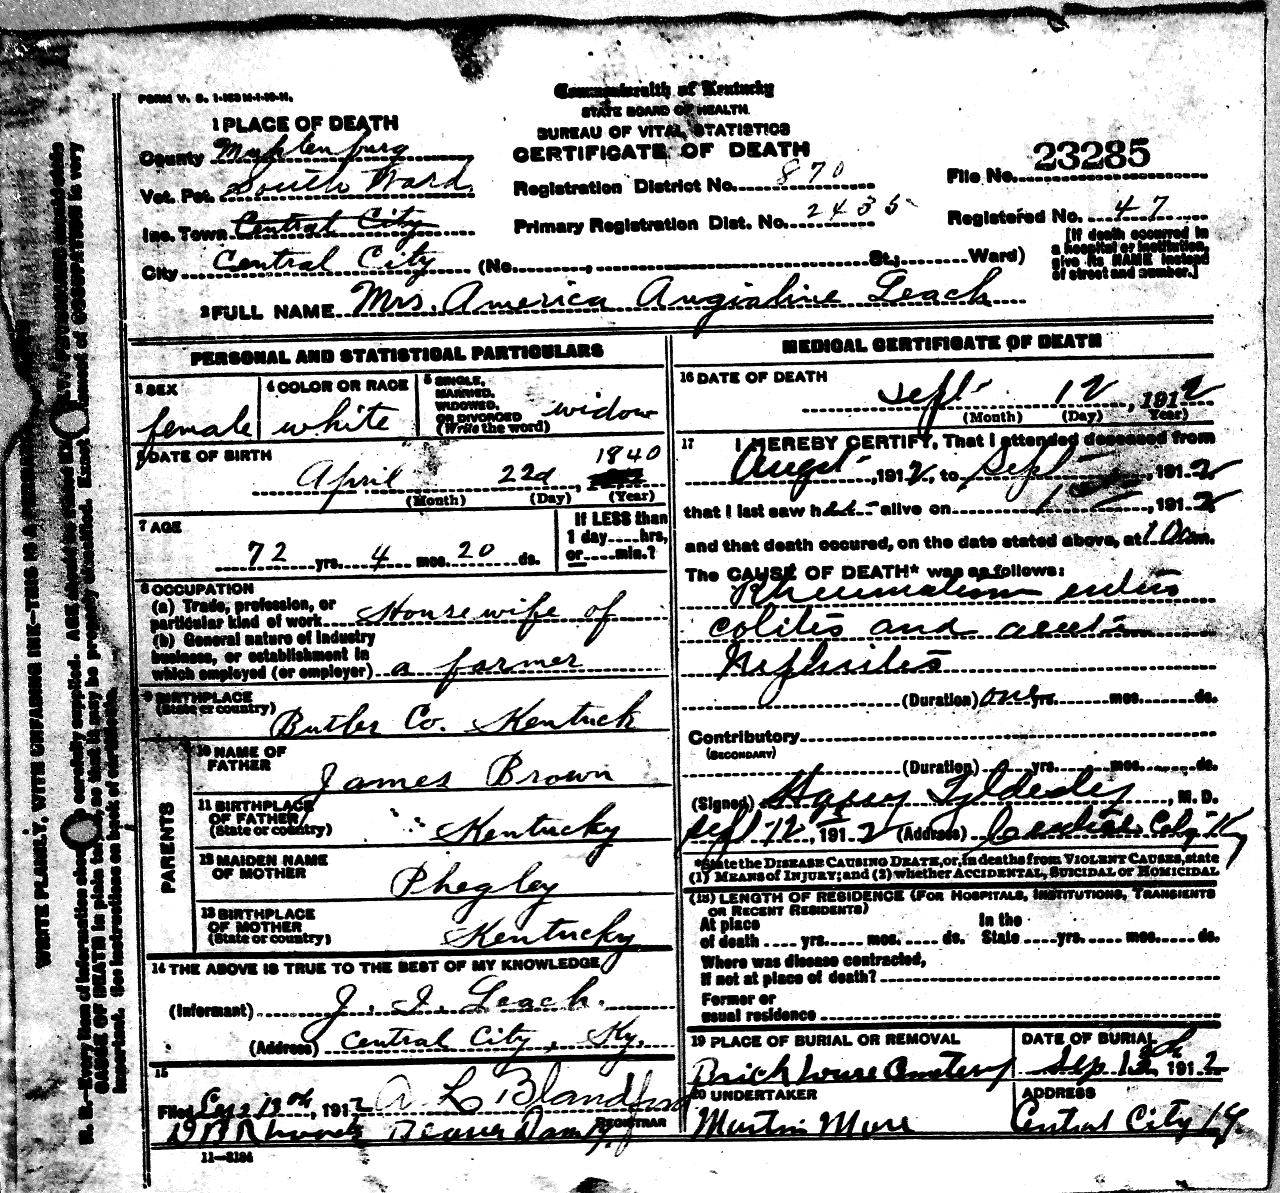 FORM V. S. 1-153 M-1-19-11.
Commonwealth of Kentucky
STATE BOARD OF HEALTH
BUREAU OF VITAL STATISTICS
CERTIFICATE OF DEATH
1 PLACE OF DEATH
County Muhlenburg
Vot. Pct. South Ward
Inc. Town Central City
City Central City (No. , St.; Ward)
Registration District No. 870
Primary Registration Dist. No. 2435
File No. 23285
Registered No. 47
[If death occurred in
a hospital or institution,
give its NAME instead
of street and number.]
2 FULL NAME Mrs. America Angialine Leach
PERSONAL AND STATISTICAL PARTICULARS
3 SEX
female
4 COLOR OR RACE
white
5 SINGLE,
MARRIED,
WIDOWED,
OR DIVORCED
(Write the word)
widow
6 DATE OF BIRTH
April 22d, 1840
(Month) (Day) (Year)
7 AGE
72 yrs. 4 mos. 20 ds.
If LESS than
1 day....hrs,
or....min.?
8 OCCUPATION
(a) Trade, profession, or
particular kind of work Housewife of
(b) General nature of industry
business, or establishment in
which employed (or employer) a farmer
9 BIRTHPLACE
(State or country)
Butler Co. Kentuck
PARENTS
10 NAME OF
FATHER
James Brown
11 BIRTHPLACE
OF FATHER
(State or country)
" " Kentucky
12 MAIDEN NAME
OF MOTHER
Phegley
13 BIRTHPLACE
OF MOTHER
(State or country)
Kentucky
14 THE ABOVE IS TRUE TO THE BEST OF MY KNOWLEDGE
(Informant) J. I. Leach.
(Address) Central City, Ky.
15
Filed 19th, 1912 A L Blandford
Beaver Dam REGISTRAR
11-8184
MEDICAL CERTIFICATE OF DEATH
16 DATE OF DEATH
Sept- 12, 1912
(Month) (Day) Year)
17 I HEREBY CERTIFY, That I attended deceased from
Augst-, 1912, to Sept-, 1912
that I last saw h alive on 1 , 1912
and that death occured, on the date stated above, at 10 am.
The CAUSE OF DEATH* was as follows:
Rheumatism
colites and acute
Nephrites
(Duration) one yrs. mos. ds.
Contributory
(SECONDARY)
(Duration) yrs. mos. ds.
(Signed) Tyldesley, M. D.
Sept 12, 1912 (Address) Central City Ky
*State the DISEASE CAUSING DEATH, or, in deaths from VIOLENT CAUSES, state
(1) MEANS of INJURY; and (2) whether ACCIDENTAL, SUICIDAL or HOMICIDAL
(18) LENGTH OF RESIDENCE (FOR HOSPITALS, INSTITUTIONS, TRANSIENTS
OR RECENT RESIDENTS)
At place
of death .... yrs. mos. ds.
In the
State yrs. mos. ds.
Where was disease contracted,
if not at place of death?
Former or
usual residence
19 PLACE OF BURIAL OR REMOVAL
Brick house Cemetery
DATE OF BURIAL
Sep 13d, 1912
20 UNDERTAKER
Martin Moore
ADDRESS
Central City Ky.
WRITE PLAINLY, WITH UNFADING INK—THIS IS A PERMANENT
N. B.—Every item of information should be carefully supplied. AGE should be stated EXACTLY. PHYSICIANS should state
CAUSE OF DEATH in plain terms, so that it may be properly classified. Exact statement of OCCUPATION is very
important. See instructions on back of certificate.